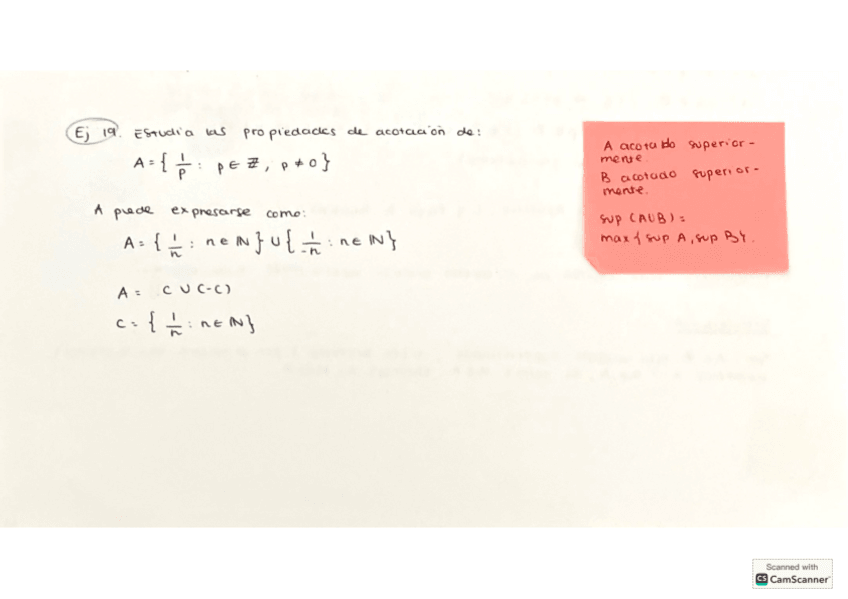 Ej 19. Estudia las propiedades de acotación de:
A = { 1/p : p ∈ ℤ, p ≠ 0 }
A puede expresarse como:
A = { 1/n : n ∈ ℕ } ∪ { 1/-n : n ∈ ℕ }
A = C ∪ (-C)
C = { 1/n : n ∈ ℕ }
A acotado superior-
mente.
B acotado superior-
mente.
sup (A∪B) =
max { sup A, sup B }.
Scanned with
CS CamScanner